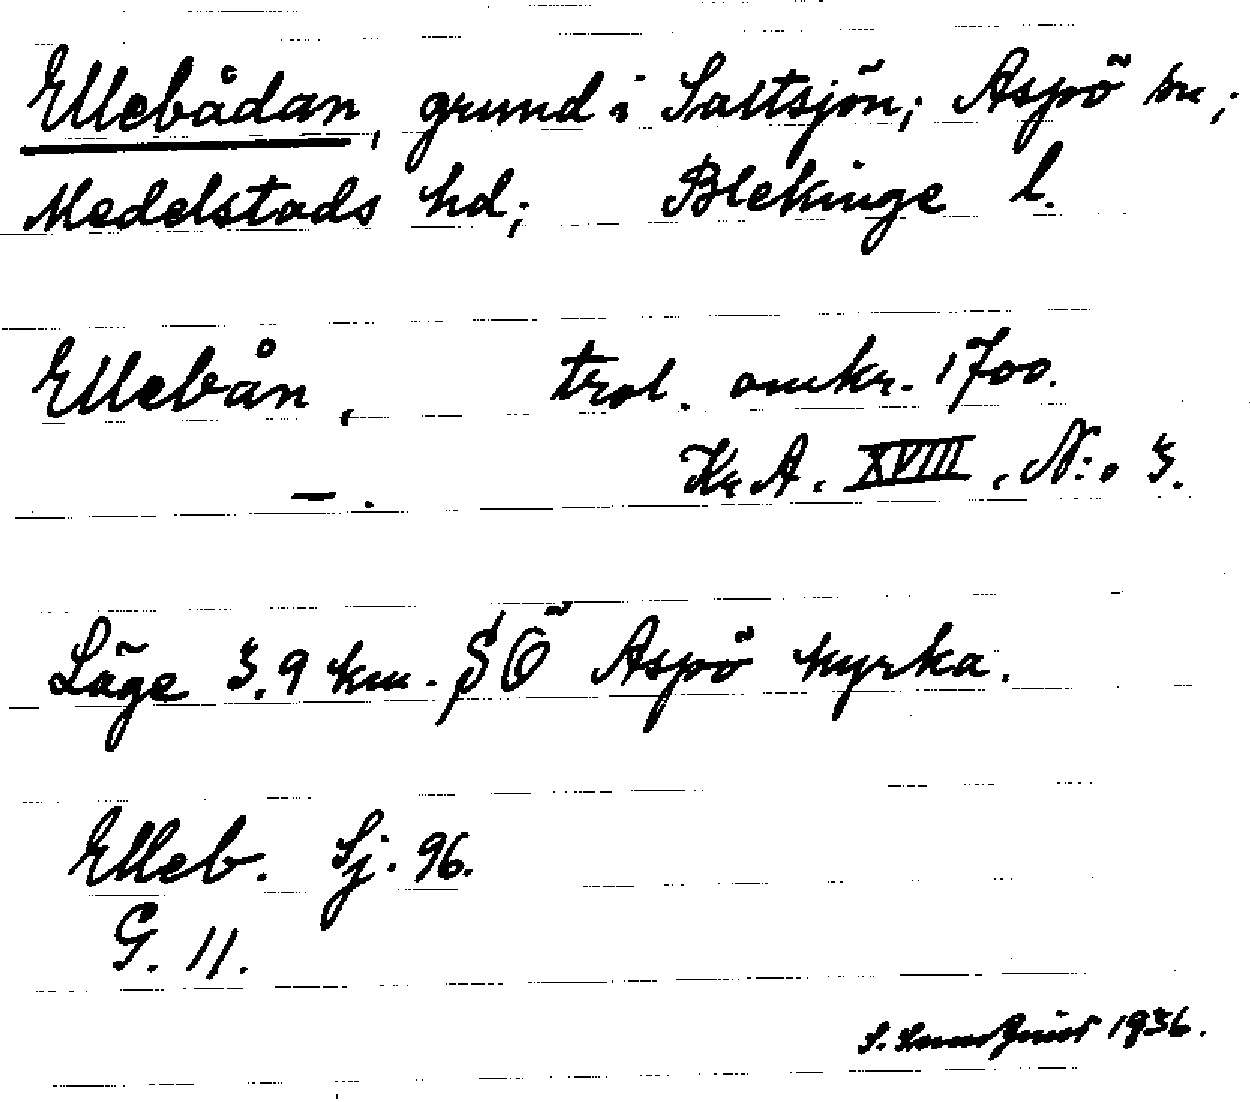 Ellebådan, grund i Saltsjön; Aspö sn;
Medelstads hd; Blekinge l.
Ellebån, trol. omkr. 1700.
—. Kr A. XVIII. N:o 3.
Läge 3.9 km. SÖ Aspö kyrka.
Elleb. Sj. 96.
G. 11.
S. 1936.